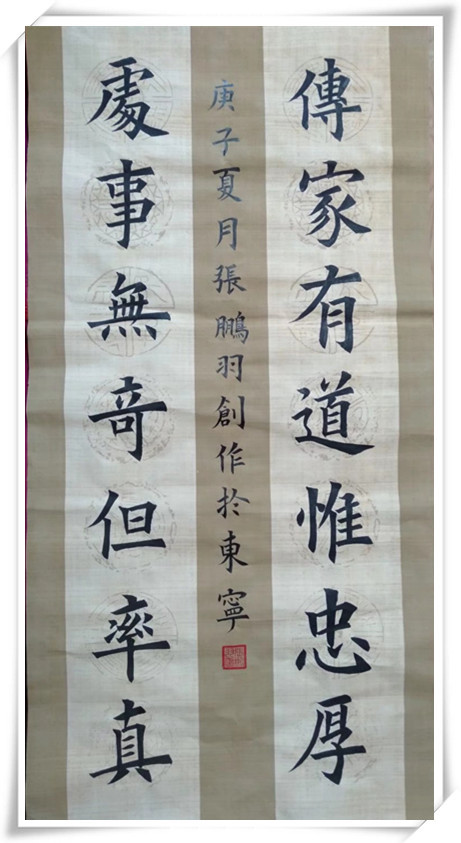 傳家有道惟忠厚
處事無竒但率真
庚子夏月張鵬羽創作於東寧